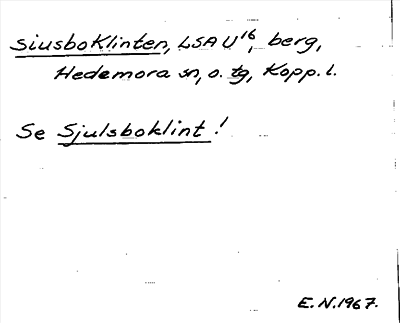 Siusboklinten, LSA U16, berg,
Hedemora sn, o. tg, Kopp. l.
Se Sjulsboklint!
E. N. 1967.